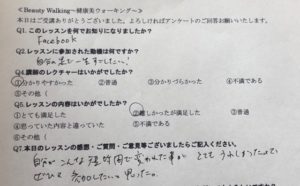 ≪Beauty Walking～健康美ウォーキング～≫
本日はご受講ありがとうございました。よろしければアンケートのご回答お願いいたします。
Q1.このレッスンを何でお知りになりましたか？
Facebook
Q2.レッスンに参加された動機は何ですか？
自分の
Q4.講師のレクチャーはいかがでしたか？
①分かりやすかった ②普通 ③分かりづらかった ④不満である
⑤その他（
Q5.レッスンの内容はいかがでしたか？
①とても満足した ②難しかったが満足した ③普通
④思っていた内容と違っていた ⑤不満である
⑥その他（
Q7.本日のレッスンの感想・ご質問・ご意見等ございましたらご記入ください。
自分がこんな短時間で変われた事が とても うれしかったので
ぜひとも 参加したいと思った。